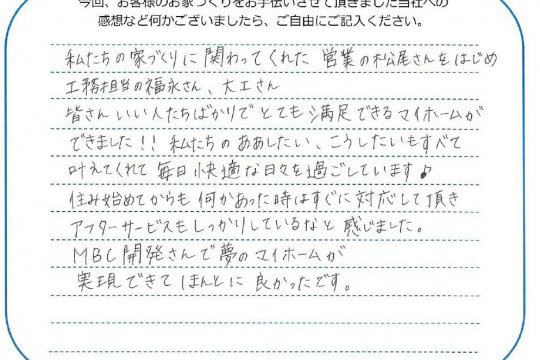 今回、お客様のお家づくりをお手伝いさせて頂きました当社への
感想など何かございましたら、ご自由にご記入ください。
私たちの家づくりに関わってくれた 営業の松尾さんをはじめ
工務担当の福永さん、大工さん
皆さん いい人たちばかりで とても 満足できるマイホームが
できました!! 私たちの ああしたい、こうしたいもすべて
叶えてくれて 毎日 快適な日々を過ごしています♪
住み始めてからも 何かあった時はすぐに 対応して頂き
アフターサービスもしっかりしているなと 感じました。
MBC開発さんで夢のマイホームが
実現できて ほんとに 良かったです。